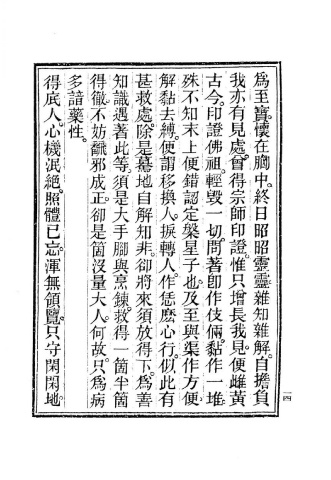 為至寶懷在胸中。終日昭昭靈靈。雜知雜解。自擔負
我亦有見處。曾得宗師印證。惟只增長我見。便雌黃
古今。印證佛祖。輕毀一切。問著即作伎倆。黏作一堆
殊不知末上便錯認定槃星子也。及至與渠作方便
解黏去縛。便謂移換人。捩轉人。作恁麽心行。似此有
甚救處。除是驀地自解知非。卻將來須放得下。為善
知識遇著此等。須是大手腳與烹鍊。救得一箇半箇
得徹。不妨翻邪成正。卻是箇沒量大人。何故。只為病
多諳藥性。
得底人。心機泯絕。照體已忘。渾無領覽。只守閑閑地。
一四